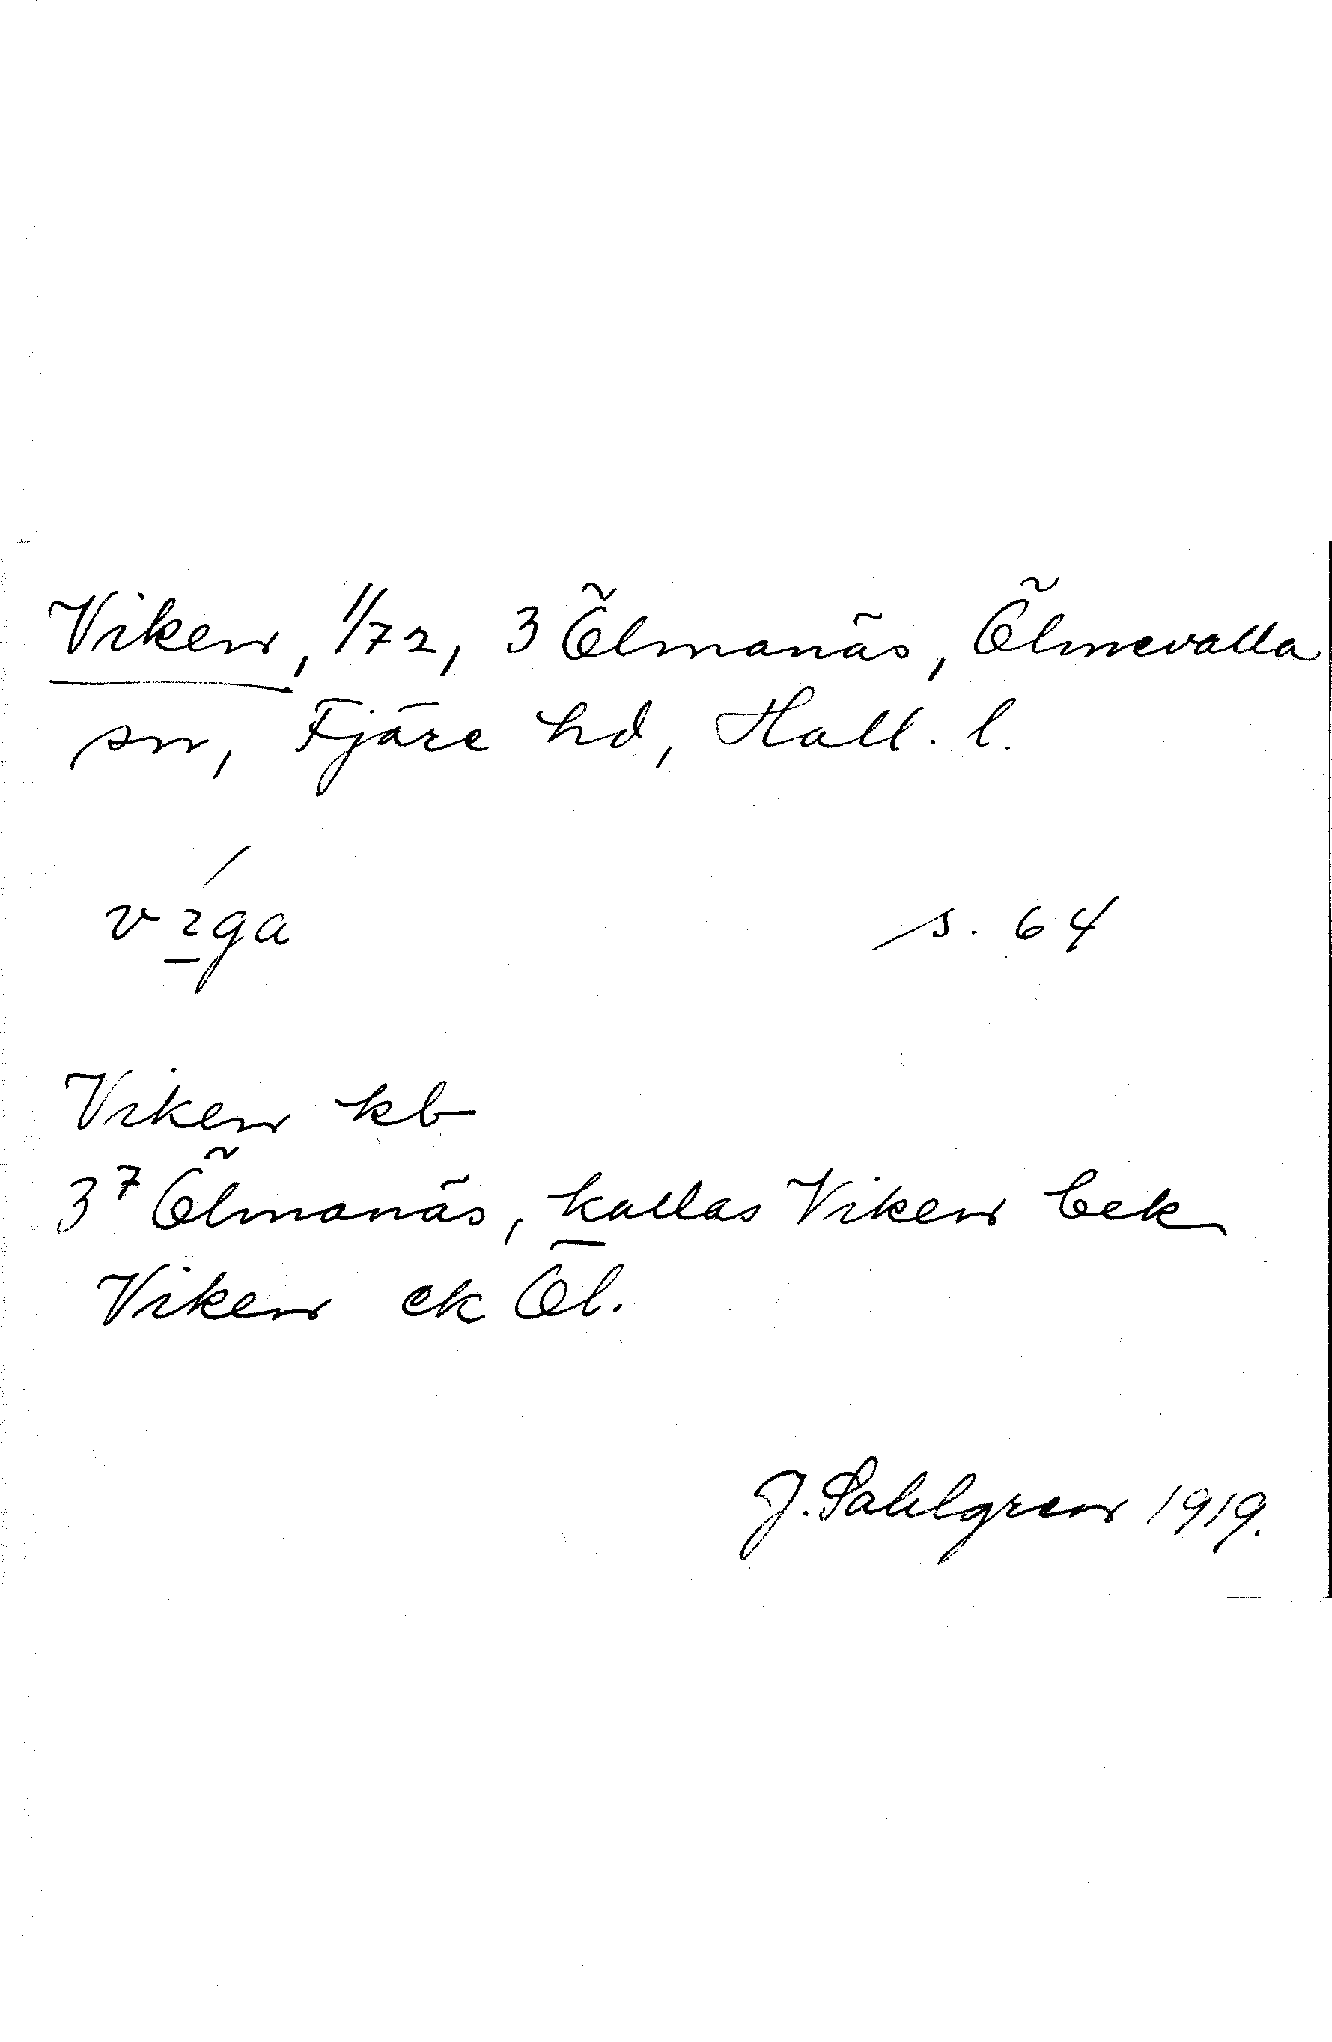 Viken, 1/72, 3 Ölmanäs, Ölmevalla
sn, Fjäre hd, Hall. l.
víga s. 64
Viken kb
3⁷ Ölmanäs, kallas Viken bek
Viken ek Öl.
J. Sahlgren 1919.